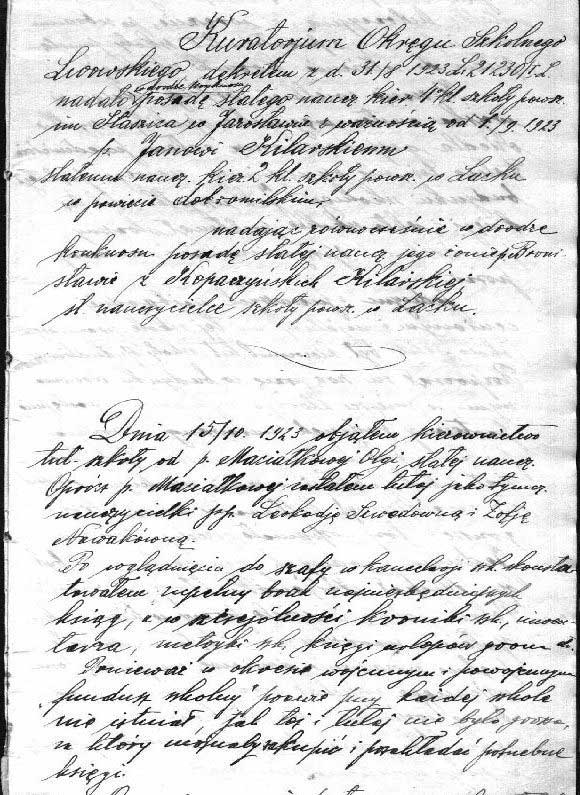 Kuratorjum Okręgu Szkolnego
Lwowskiego dekretem z d. 31/8 1923 L. 21230/II. L.
w drodze konkursu
nadało posadę stałego naucz. kier. 7 kl. szkoły powsz.
im. Staszica w Jarosławiu z ważnością od 1./9. 1923
p. Janowi Kilarskiemu
stałemu naucz. kier. 2 kl. szkoły powsz. w Lacku
w powiecie dobromilskim,
nadając równocześnie w drodze
konkursu posadę stałej naucz. jego żonie p. Broni
sławie z Kopaczyńskich Kilarskiej
st. nauczycielce szkoły powsz. w Lacku.
Dnia 15/10. 1923 objąłem kierownictwo
tut. szkoły od p. Masiałkowej Olgi, stałej naucz.
Oprócz p. Masiałkowej zastałem tutaj jako tymcz.
nauczycielki pp. Leokadję Szwedówną i Zofję
Nowakówną.
Po wglądnięciu do szafy w kancelarji szk. skonsta
towałem zupełny brak najniezbędniejszych
ksiąg, a w szczególności kroniki szk., inwen
tarza, metryki szk., księgi urlopów
Ponieważ w okresie wojennym i powojennym
"fundusz szkolny" prawie przy każdej szkole
nie istniał, jak tej i tutaj nie było grosza,
za który możnaby zakupić i pozakładać potrzebne
księgi.